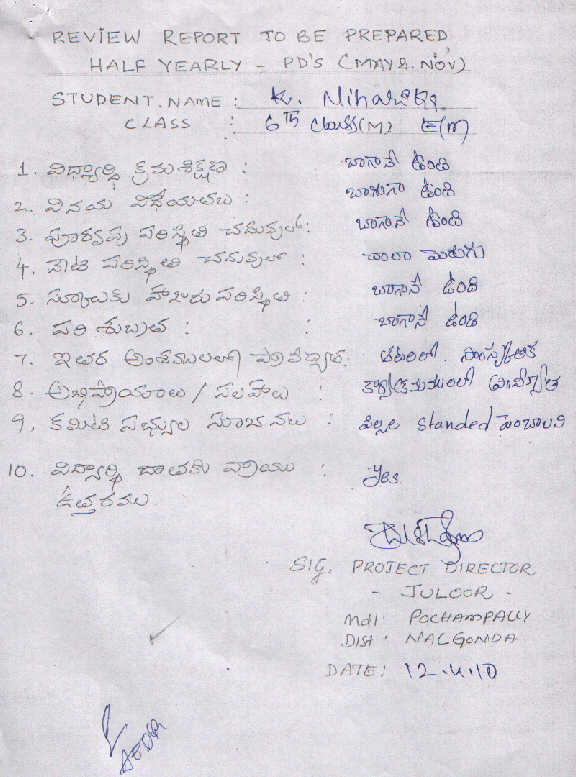 REVIEW REPORT TO BE PREPARED
HALF YEARLY - PD'S (MAY & NOV)
STUDENT. NAME : K. Niharika
CLASS : 6TH Class (M) E(M)
1. విద్యార్థి క్రమశిక్షణ : బాగానే ఉంది
2. వినయ విధేయతలు : బాగుగా ఉంది
3. పూర్వపు పరిస్థితి చదువులో : బాగానే ఉంది
4. నేటి పరిస్థితి చదువులో : చాలా మెరుగు
5. స్కూలుకు హాజరు పరిస్థితి : బాగానే ఉంది
6. పరిశుభ్రత : బాగానే ఉంది
7. ఇతర అంశములలో ప్రావీణ్యత : సాంస్కృతిక
8. అభిప్రాయాలు / సలహాలు : కార్యక్రమములలో ప్రావీణ్యత
9. కమిటి సభ్యుల సూచనలు : పిల్లల Standed పెంచాలని
10. విద్యార్థి దాతకు వ్రాయు : Yes.
ఉత్తరములు
SIG. PROJECT DIRECTOR
- JULOOR -
Mdl: POCHAMPALLY
DIST: NALGONDA
DATE: 12-4-10